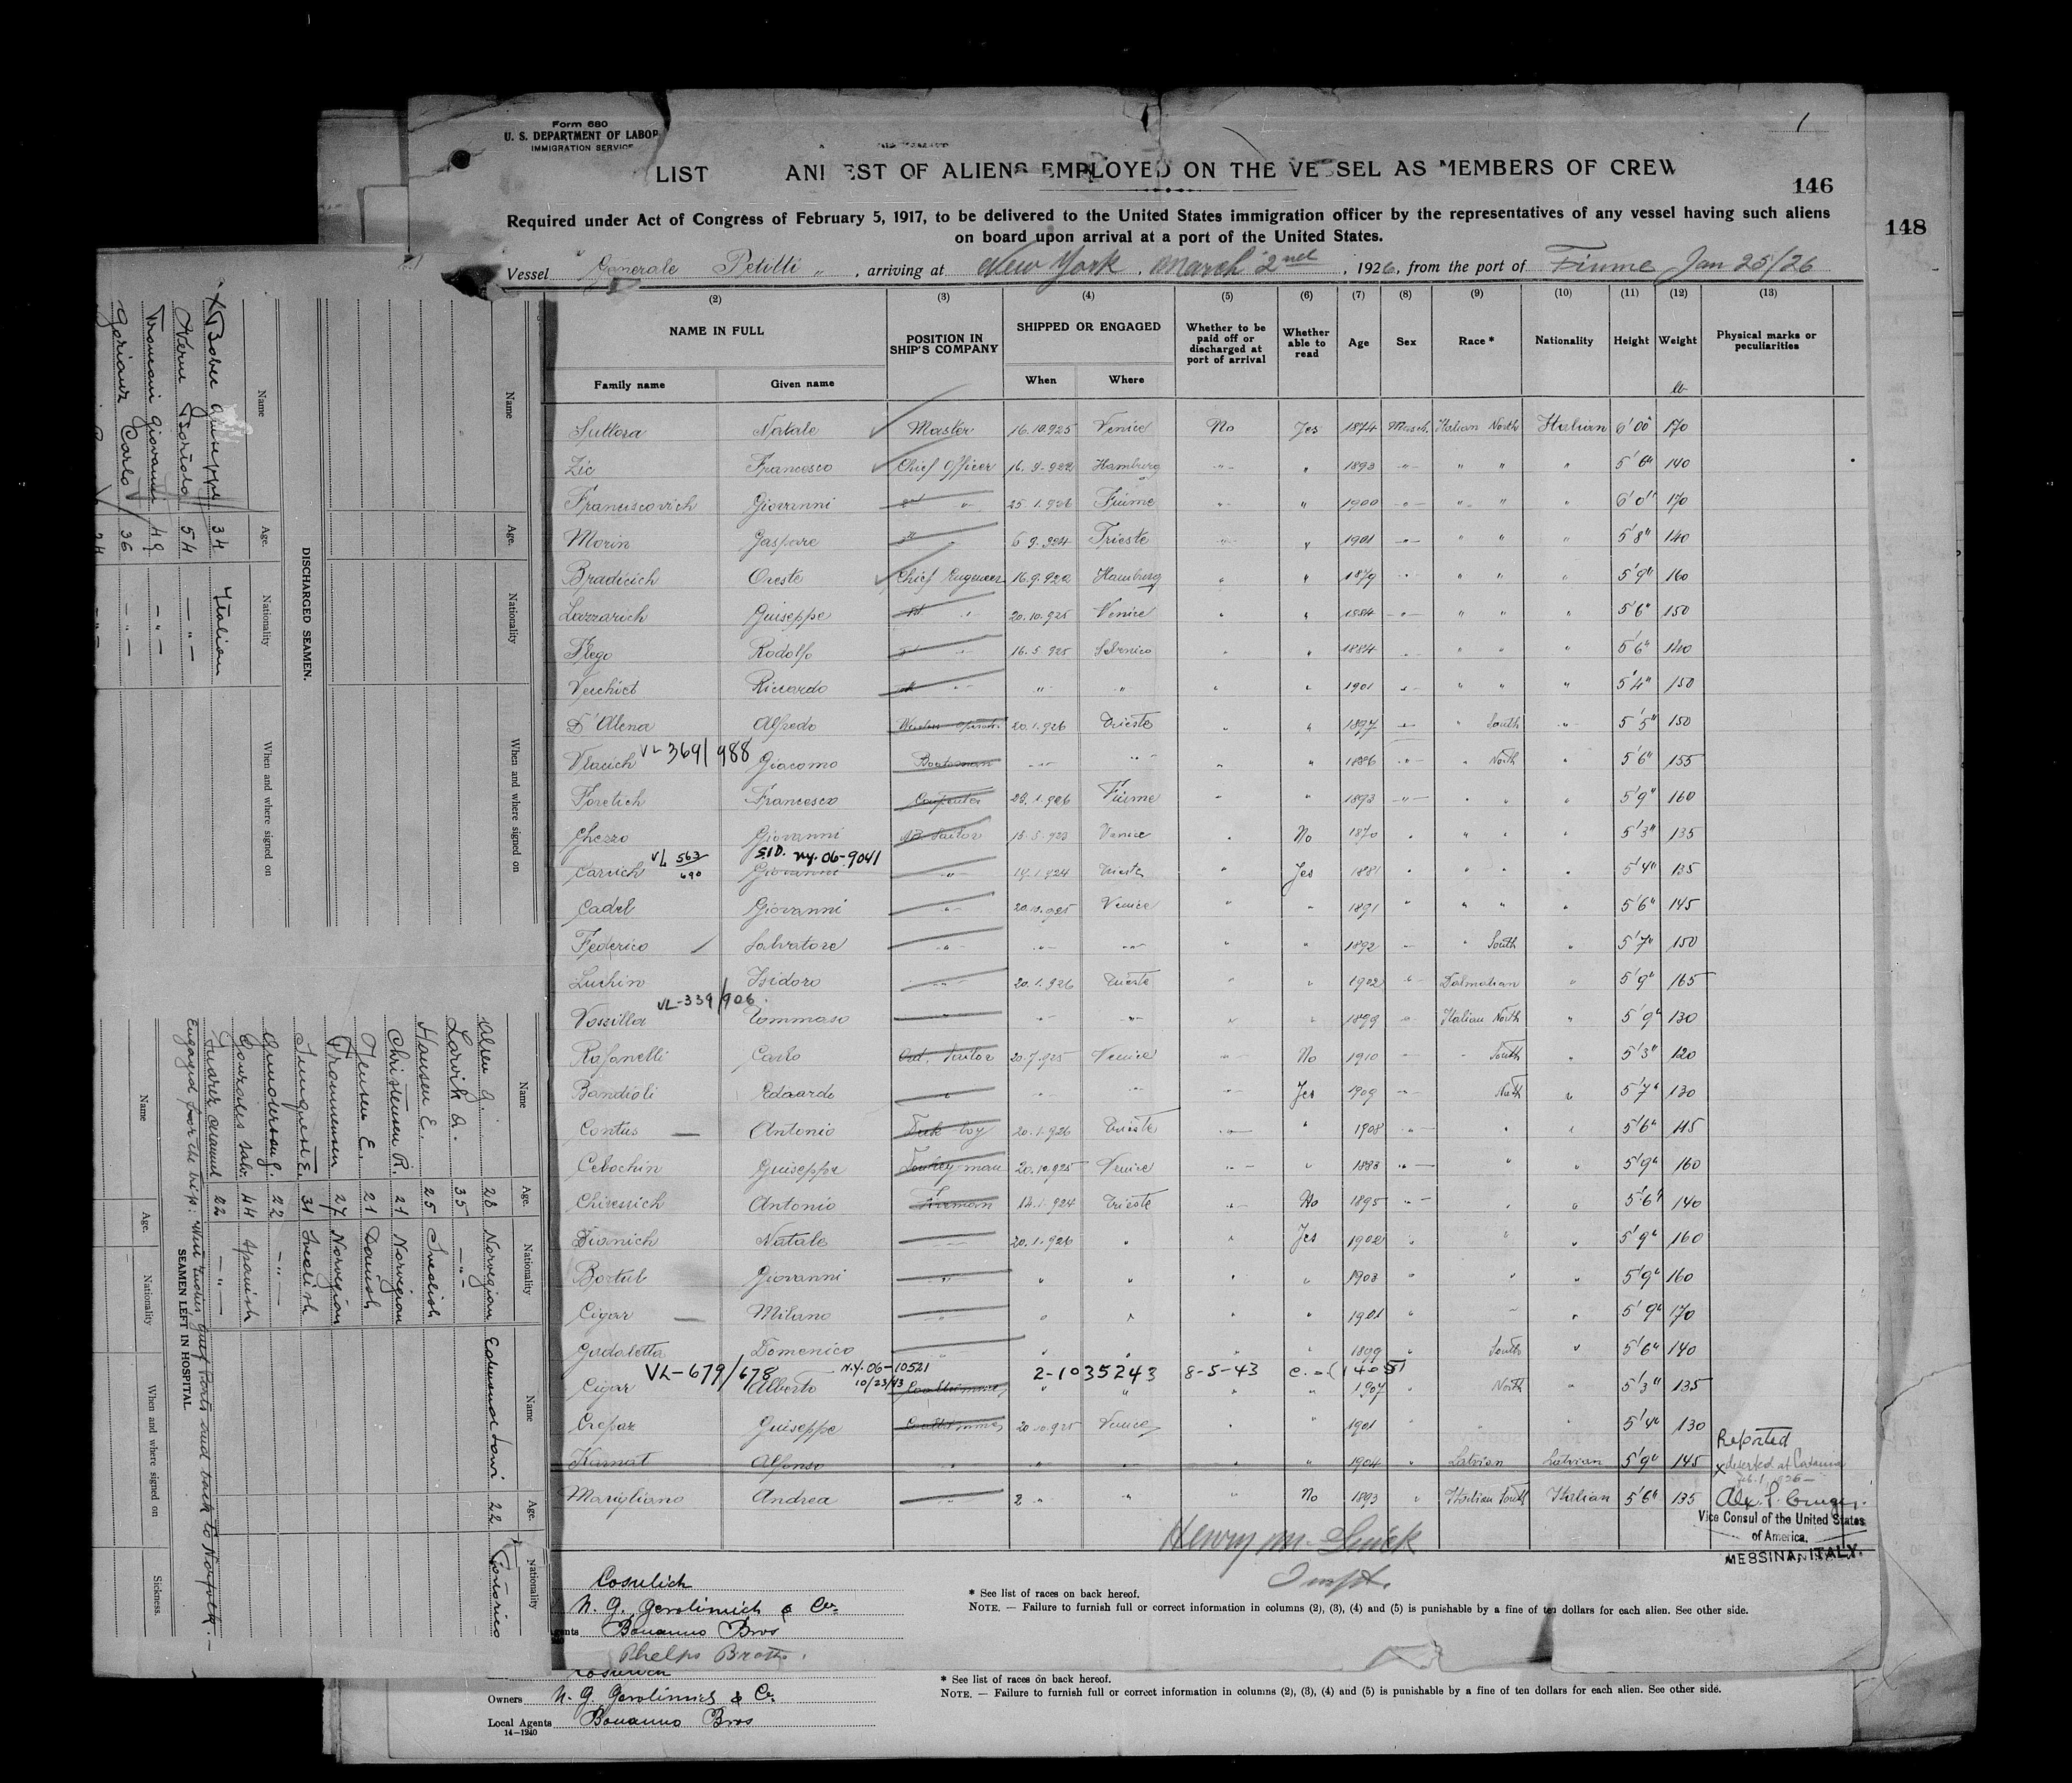 Form 680
U. S. DEPARTMENT OF LABOR
IMMIGRATION SERVICE
1
LIST ANI EST OF ALIENS EMPLOYED ON THE VESSEL AS MEMBERS OF CREW
146
148
Required under Act of Congress of February 5, 1917, to be delivered to the United States immigration officer by the representatives of any vessel having such aliens
on board upon arrival at a port of the United States.
Vessel Generale Petitti, arriving at New York, March 2nd, 1926, from the port of Fiume Jan 25/26
(2) (3) (4) (5) (6) (7) (8) (9) (10) (11) (12) (13)
NAME IN FULL POSITION IN SHIP'S COMPANY SHIPPED OR ENGAGED Whether to be paid off or discharged at port of arrival Whether able to read Age Sex Race * Nationality Height Weight Physical marks or peculiarities
Family name Given name When Where lb
Suttora Natale Master 16.10.925 Venice No Yes 1874 Italian North Italian 6'00" 170
Zic Francesco Chief Officer 16.9.922 Hamburg " 1893 " " " 5'6" 140
Franciscovich Giovanni " 25.1.926 Fiume " 1900 " " " 6'0" 170
Morin Gaspare " 6.9.924 Trieste " 1901 " " " 5'8" 140
Bradicich Oreste Chief Engineer 16.9.922 Hamburg " 1879 " " " 5'9" 160
Lazzarich Guiseppe " 20.10.925 Venice " 1884 " " " 5'6" 150
Flego Rodolfo " 16.5.925 Sebenico " 1884 " " " 5'6" 140
Verchict Riccardo " " " " 1901 " " " 5'4" 150
D'Alena Alfredo Wireless Operat. 20.1.926 Trieste " 1897 " South " 5'5" 150
VL-369/988
Vlacich Giacomo Boatsman " " " 1886 " North " 5'6" 155
Foretich Francesco Carpenter 23.1.926 Fiume " 1893 " " " 5'9" 160
Ghezzo Giovanni AB Sailor 15.5.923 Venice No 1870 " " " 5'3" 135
VL 563/690 S.I.D. ny. 06-9041
Carvich Giovanni " 14.1.924 Trieste Yes 1881 " " " 5'4" 135
Cadel Giovanni " 20.10.925 Venice " 1891 " " " 5'6" 145
Federico Salvatore " " " " 1892 " South " 5'7" 150
Luchin Isidoro " 20.1.926 Trieste " 1902 Dalmatian " 5'9" 165
VL-339/906
Vossilla Tommaso " " " " 1899 Italian North " 5'9" 130
Rafanelli Carlo Ord. Sailor 20.7.925 Venice No 1910 " South " 5'3" 120
Bandioli Edoardo " " " Yes 1909 North " 5'7" 130
Contus Antonio Deck boy 20.1.926 Trieste " 1908 " " 5'6" 115
Cebochin Guiseppe Donkey man 20.10.925 Venice " 1883 " " 5'9" 160
Chiressich Antonio Fireman 14.1.924 Trieste No 1895 " " 5'6" 140
Bionich Natale " 20.1.926 " Yes 1902 " " 5'9" 160
Bortul Giovanni " " " " 1903 " " 5'9" 160
Cigar Milano " " " " 1901 " " 5'9" 170
Gadaletta Domenico " " " " 1899 South " 5'6" 140
VL-679/678 N.Y. 06-10521 10/23/43 2-1035243 8-5-43
Cigar Alberto Coaltrimmer " " " 1907 North " 5'3" 135
Crepaz Guiseppe Coaltrimmer 20.10.925 Venice " 1901 " " 5'4" 130
Karnat Alfonso " " " " 1904 Latvian Latvian 5'9" 145
Marigliano Andrea " " " No 1893 Italian South Italian 5'6" 135
Reported
x deserted at Catania
Vice Consul of the United States
of America,
MESSINA, ITALY.
Cosulich
N. G. Gerolimich & Co.
Bonanno Bros
Phelps Broth.
* See list of races on back hereof.
NOTE. — Failure to furnish full or correct information in columns (2), (3), (4) and (5) is punishable by a fine of ten dollars for each alien. See other side.
Owners N. G. Gerolimich & Co.
Local Agents Bonanno Bros
14-1240
* See list of races on back hereof.
NOTE. — Failure to furnish full or correct information in columns (2), (3), (4) and (5) is punishable by a fine of ten dollars for each alien. See other side.
Name Age. Nationality When and where signed on
DISCHARGED SEAMEN.
Name Age. Nationality When and where signed on
x Bober Guiseppe 34 Italian
54 — " —
Giovanni 49 — " —
Carlo 36 — " —
Name Age. Nationality Name Age. Nationality
Olsen G. 28 Norvegian 22
Larvik A. 35 — " —
Hansen E. 25 Svedish
Christensen R. 21 Norvegian
Jensen E. 21 Danish
Frommensen 27 Norvegian
31 Svedish
Gunderson J. 22 — " —
Gonzales Salv. 44 Spanish
Manuel 22 — " —
Engaged for the trip: West Indies, Gulf Ports and back to Norfolk.
SEAMEN LEFT IN HOSPITAL
Name Age. Nationality When and where signed on Sickness.